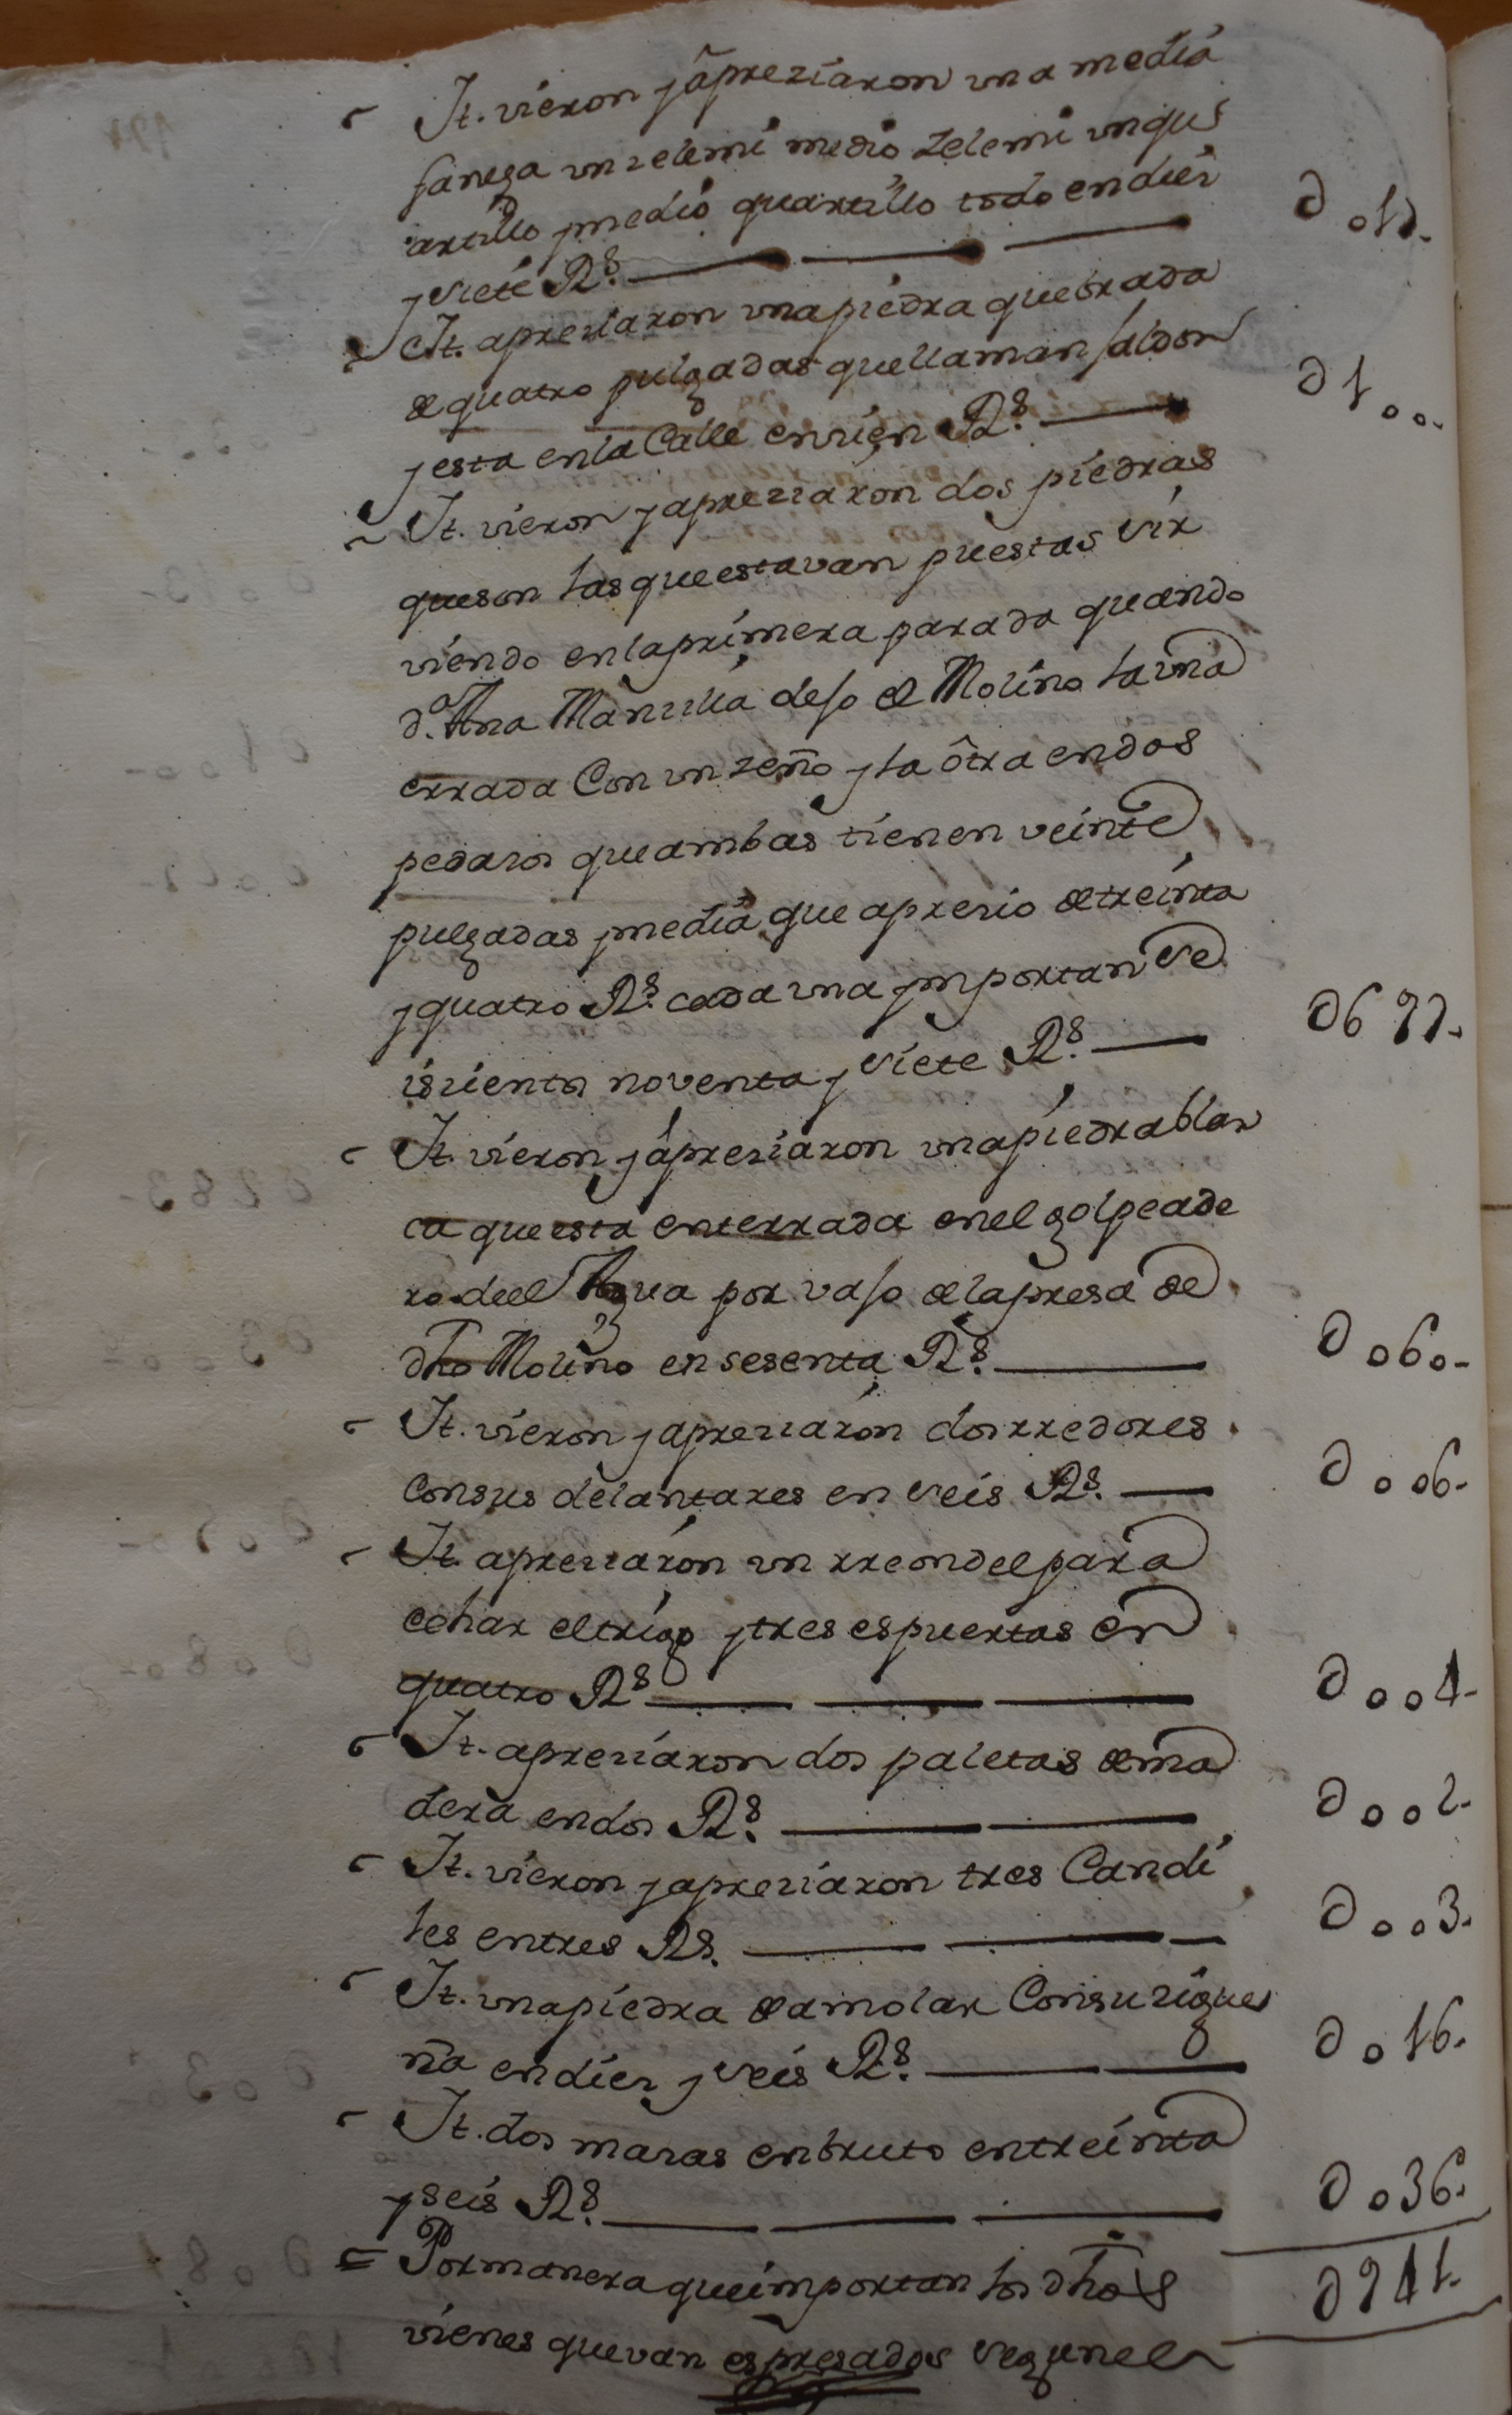 It. vieron y apreziaron una media
fanega un zelemi medio zelemi un qu
artillo y medio quartillo todo en diez
y siete Rs. D 017.
It. apreziaron una piedra quebrada
de quatro pulgadas que llaman saldon
y esta en la Calle en zien Rs. D 100.
It. vieron y apreziaron dos piedras
que son las que estavan puestas sir
viendo en la primera parada quando
Da. Ana Manzilla deso el Molino la una
errada Con un zeño y la otra en dos
pedazos que ambas tienen veinte
pulgadas y media que aprezio de treinta
y quatro Rs. cada una ymportan se
iszientos noventa y siete Rs. D 697.
It. vieron y apreziaron una piedra blan
ca que esta enterrada en el golpeade
ro deel Agua por vaso de la presa de
dho Molino en sesenta Rs. D 060.
It. vieron y apreziaron dos rredores
Con sus delantares en seis Rs. D 006.
It. apreziaron un rreondel para
echar el trigo y tres espuertas en
quatro Rs. D 004.
It. apreziaron dos paletas de ma
dera en dos Rs. D 002.
It. vieron y apreziaron tres Candi
les en tres Rs. D 003.
It. una piedra de amolar Con su zigue
ña en diez y seis Rs. D 016.
It. dos mazas en bruto en treinta
y seis Rs. D 036.
Por manera que importan los dhos D 941.
vienes que van espresados segun el